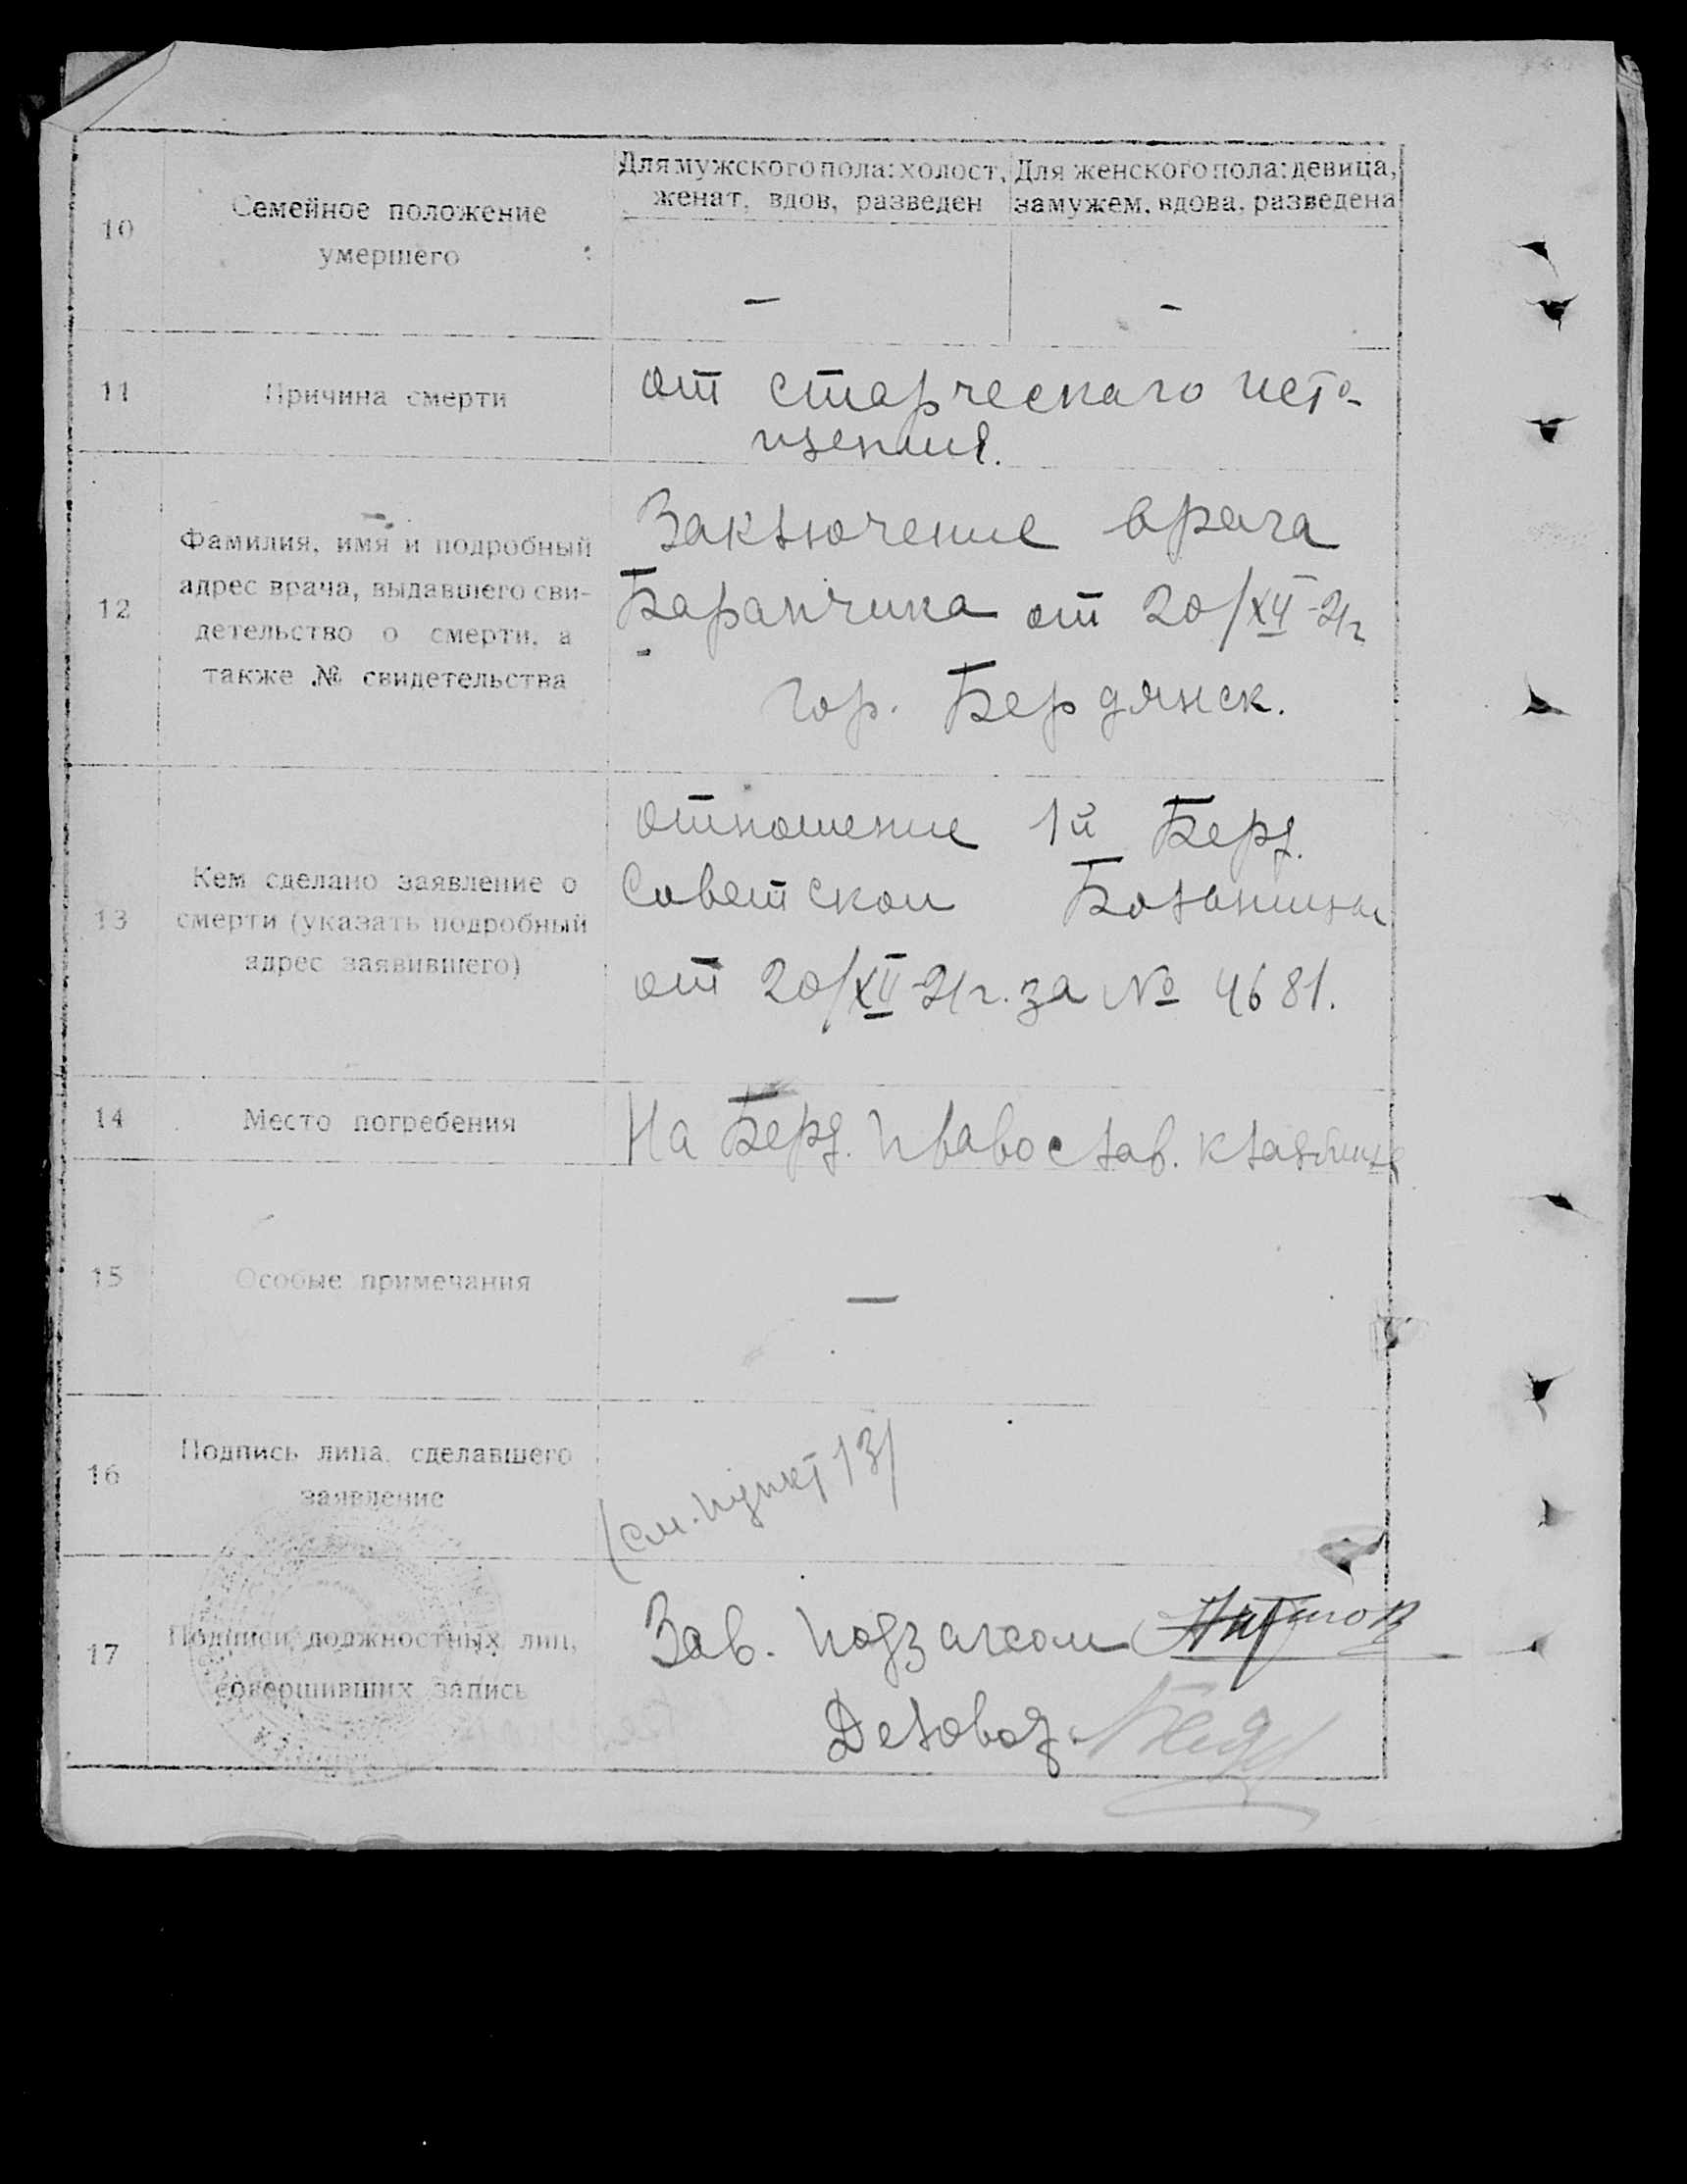 Для мужского пола: холост,
женат, вдов, разведен
Для женского пола: девица,
замужем, вдова, разведена
10
Семейное положение
умершего
—
—
11
Причина смерти
от старческаго исто-
щения.
12
Фамилия, имя и подробный
адрес врача, выдавшего сви-
детельство о смерти, а
также № свидетельства
Заключение врача
Баранчика от 20/XII-21г
гор. Бердянск.
13
Кем сделано заявление о
смерти (указать подробный
адрес заявившего)
отношение 1й Берд.
Советской Больницы
от 20/XII-21г. за № 4681.
14
Место погребения
На Берд. православ. кладбище
15
Особые примечания
—
16
Подпись лица, сделавшего
заявление
(см. пункт 13/
17
Подписи должностных лиц,
совершивших запись
Зав. подзагсом
Деловод.